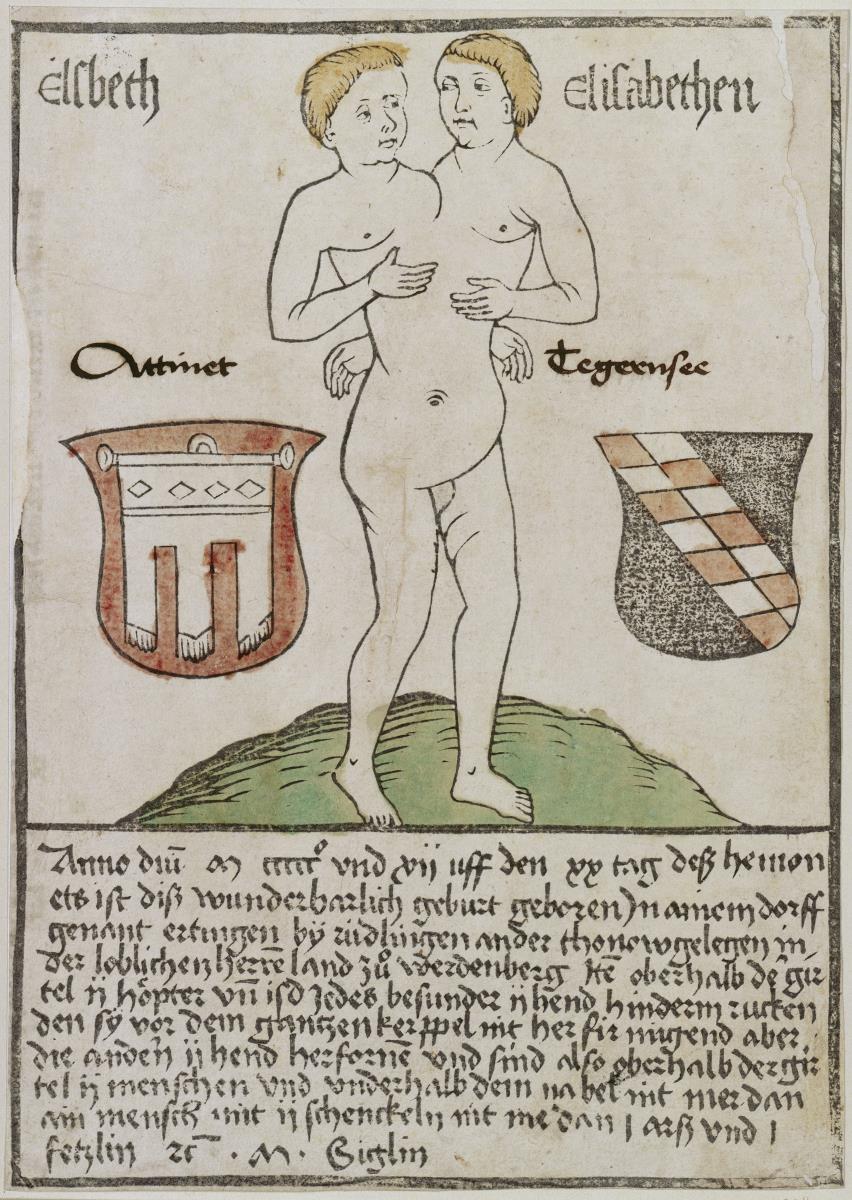 Elsbeth
Elisabethen
Attinet
Tegernsee
Anno dm̄ m cccccº vnd xij uff den xx tag deß hewmon
ets ist diß wunderbarlich geburt geboren Jn ainem dorff
genant ertingen by rüdlingen an der thonow gelegen in
der loblichen herrē land zů werdenberg Jtē oberhalb dē gir
tel ij höpter vn̄ jedes besunder ij hend hinderm rucken
den sy vor dem gantzen kerppel nit her fir mügend aber
die andern ij hend herfornē vnd sind also oberhalb der gir
tel ij menschen vnd vnderhalb dem nabel nit mer dan
ain mensch mit ij schenckeln nit me dan j arß vnd j
fetzlin ꝛc̄ · M · Siglin